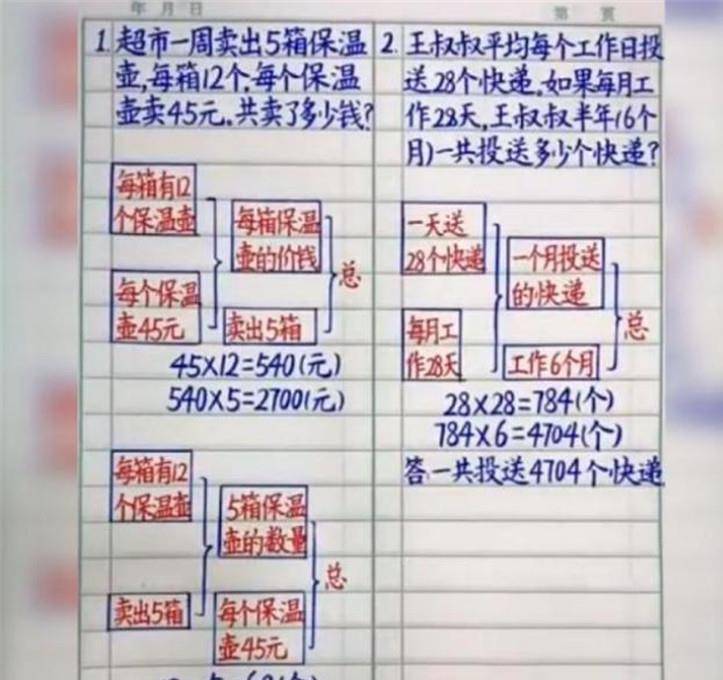 年 月 日
第 页
1. 超市一周卖出5箱保温
壶,每箱12个,每个保温
壶卖45元。共卖了多少钱?
每箱有12
个保温壶
每箱保温
壶的价钱
总
每个保温
壶45元
卖出5箱
45×12=540(元)
540×5=2700(元)
每箱有12
个保温壶
5箱保温
壶的数量
总
卖出5箱
每个保温
壶45元
2. 王叔叔平均每个工作日投
送28个快递,如果每月工
作28天,王叔叔半年(6个
月)一共投送多少个快递?
一天送
28个快递
一个月投送
的快递
总
每月工
作28天
工作6个月
28×28=784(个)
784×6=4704(个)
答一共投送4704个快递